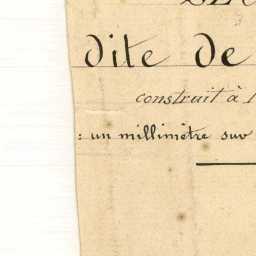 dite de
construit à l
: un millimètre sur